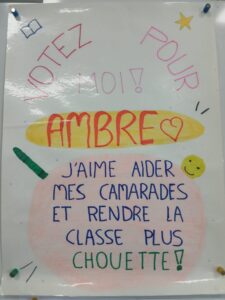 VOTEZ POUR
MOI!
AMBRE
J'AIME AIDER
MES CAMARADES
ET RENDRE LA
CLASSE PLUS
CHOUETTE!